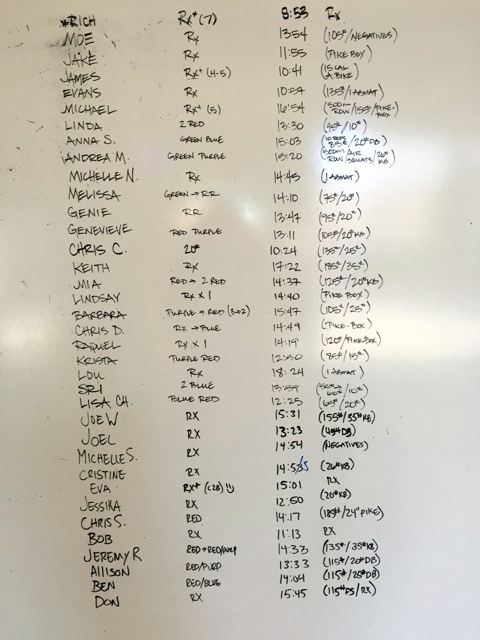 *RICH Rx+ (7) 9:53 Rx
MOE Rx 13:54 (105#/NEGATIVES)
JAKE Rx 11:55 (PIKE BOX)
JAMES Rx+ (4-5) 10:41 (15 CAL A.BIKE)
EVANS Rx 10:54 (135#/1 ABMAT)
MICHAEL Rx+ (5) 16:54 (500m ROW/155#/PIKE-BOX)
LINDA 2 RED 13:30 (95#/10#)
ANNA S. GREEN BLUE 15:03 (10 REPS 85#/20# DB)
ANDREA M. GREEN PURPLE 15:20 (500m AIR ROW/SQUATS/26# KB)
MICHELLE N. Rx 14:45 (1 ABMAT)
MELISSA GREEN → RR 14:10 (75#/20#)
GENIE RR 13:47 (95#/20#)
GENEVIEVE RED PURPLE 13:11 (105#/20# KB)
CHRIS C. 20# 10:24 (135#/25#)
KEITH Rx 17:22 (185#/35#)
MIA RED → 2 RED 14:37 (125#/20# KB)
LINDSAY Rx x 1 14:40 (PIKE BOX)
BARBARA PURPLE → RED (3→2) 15:47 (105#/25#)
CHRIS D. Rx → BLUE 14:49 (PIKE-BOX)
RAQUEL Rx x 1 14:19 (120#/PIKE-BOX)
KRISTA PURPLE RED 12:50 (85#/15#)
LOU Rx 18:24 (1 ABMAT)
SRI 2 BLUE 13:59
LISA CH. BLUE RED 12:25 (65#/20#)
JOE W RX 15:31 (155#/35# KB)
JOEL RX 13:23 (45# DB)
MICHELLE S. RX 14:54 (NEGATIVES)
CRISTINE RX 14:55 (26# KB)
EVA RX+ (<28) 15:01 RX
JESSIKA RX 12:50 (20# KB)
CHRIS S. RED 14:17 (185#/24" PIKE)
BOB RX 11:13 RX
JEREMY R RED → RED/PURP 14:33 (135#/35# KB)
ALLISON RED/PURP 13:33 (115#/20# DB)
BEN RED/BLUE 14:04 (115#/25# DB)
DON RX 15:45 (115# PS/RX)